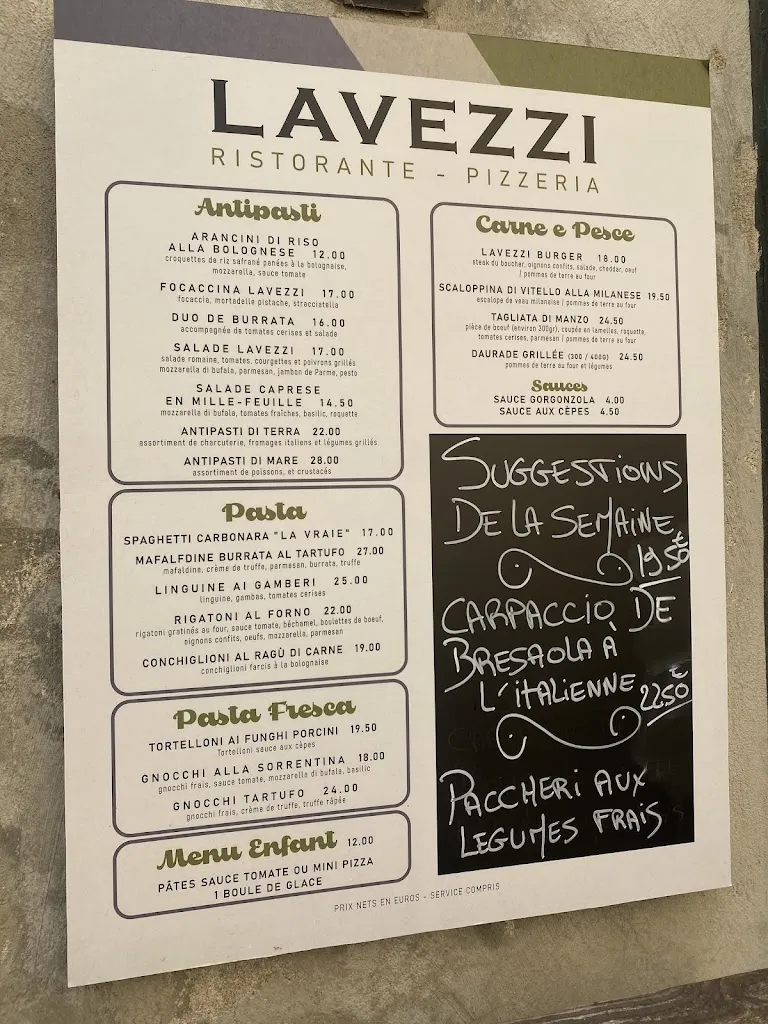 LAVEZZI
RISTORANTE - PIZZERIA
Antipasti
ARANCINI DI RISO
ALLA BOLOGNESE 12.00
croquettes de riz safrané panées à la bolognaise,
mozzarella, sauce tomate
FOCACCINA LAVEZZI 17.00
focaccia, mortadelle pistache, stracciatella
DUO DE BURRATA 16.00
accompagnée de tomates cerises et salade
SALADE LAVEZZI 17.00
salade romaine, tomates, courgettes et poivrons grillés
mozzarella di bufala, parmesan, jambon de Parme, pesto
SALADE CAPRESE
EN MILLE-FEUILLE 14.50
mozzarella di bufala, tomates fraîches, basilic, roquette
ANTIPASTI DI TERRA 22.00
assortiment de charcuterie, fromages italiens et légumes grillés
ANTIPASTI DI MARE 28.00
assortiment de poissons, et crustacés
Pasta
SPAGHETTI CARBONARA "LA VRAIE" 17.00
MAFALFDINE BURRATA AL TARTUFO 27.00
mafaldine, crème de truffe, parmesan, burrata, truffe
LINGUINE AI GAMBERI 25.00
linguine, gambas, tomates cerises
RIGATONI AL FORNO 22.00
rigatoni gratinés au four, sauce tomate, béchamel, boulettes de boeuf,
oignons confits, oeufs, mozzarella, parmesan
CONCHIGLIONI AL RAGÙ DI CARNE 19.00
conchiglioni farcis à la bolognaise
Pasta Fresca
TORTELLONI AI FUNGHI PORCINI 19.50
Tortelloni sauce aux cèpes
GNOCCHI ALLA SORRENTINA 18.00
gnocchi frais, sauce tomate, mozzarella di bufala, basilic
GNOCCHI TARTUFO 24.00
gnocchi frais, crème de truffe, truffe râpée
Menu Enfant 12.00
PÂTES SAUCE TOMATE OU MINI PIZZA
1 BOULE DE GLACE
Carne e Pesce
LAVEZZI BURGER 18.00
steak du boucher, oignons confits, salade, cheddar, oeuf
/ pommes de terre au four
SCALOPPINA DI VITELLO ALLA MILANESE 19.50
escalope de veau milanaise / pommes de terre au four
TAGLIATA DI MANZO 24.50
pièce de boeuf (environ 300gr), coupée en lamelles, roquette,
tomates cerises, parmesan / pommes de terre au four
DAURADE GRILLÉE (300 / 400G) 24.50
pommes de terre au four et légumes
Sauces
SAUCE GORGONZOLA 4.00
SAUCE AUX CÈPES 4.50
SUGGESTIONS
DE LA SEMAINE
19,50€
CARPACCIO DE
BRESAOLA À
L'ITALIENNE
22,50€
PACCHERI AUX
LEGUMES FRAIS
PRIX NETS EN EUROS - SERVICE COMPRIS